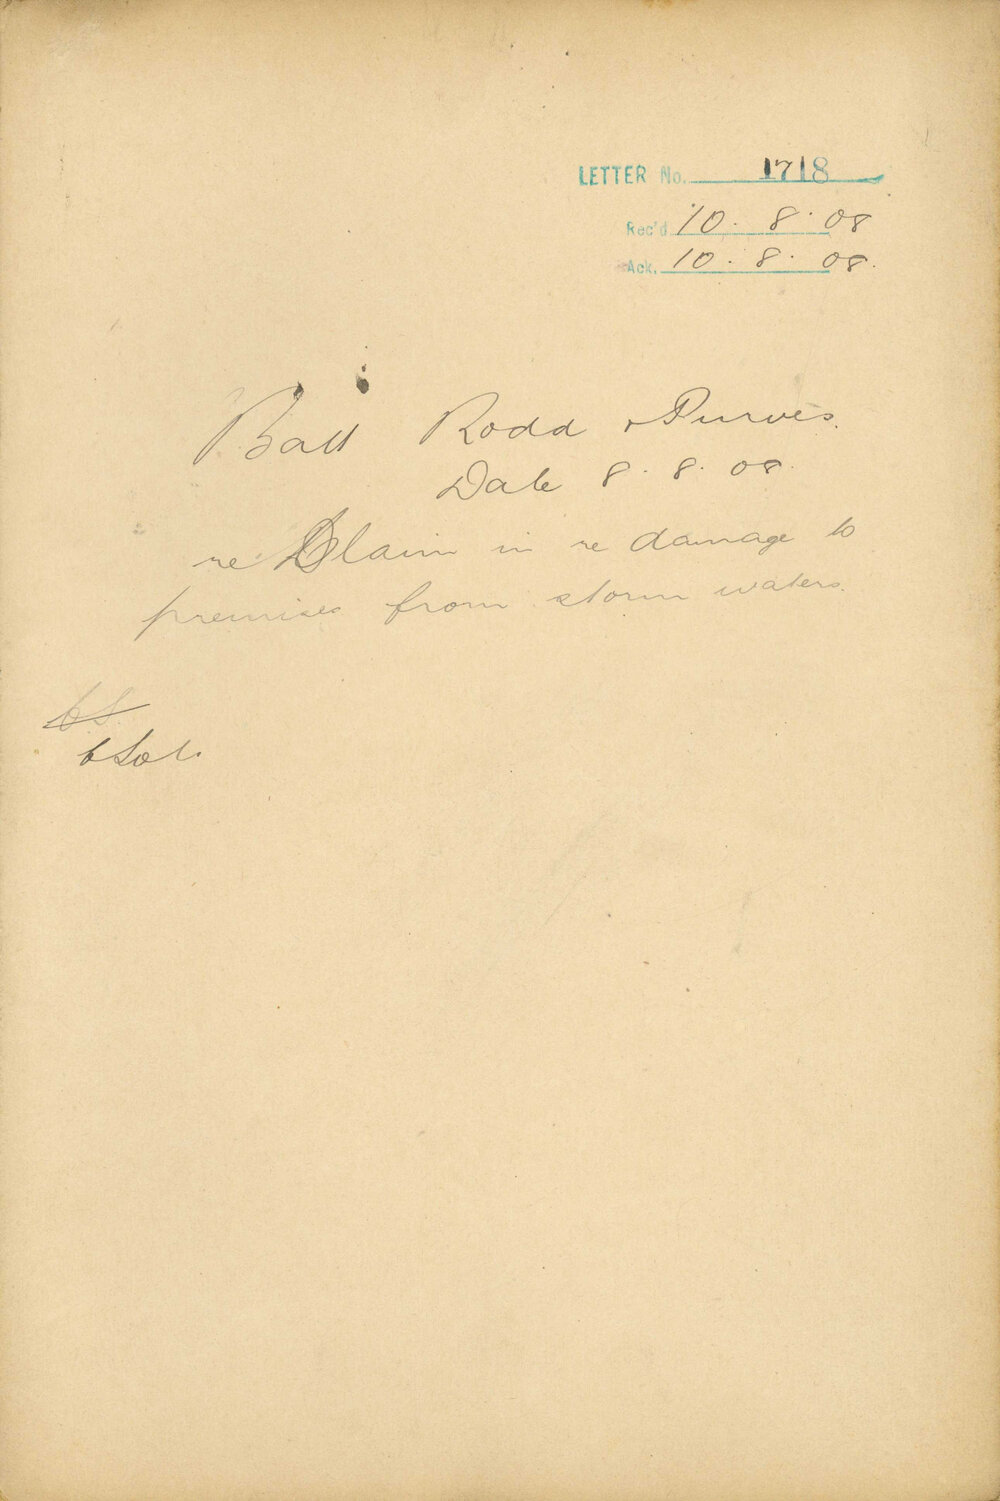 LETTER No. 1718
Rec'd 10. 8. 08
Ack. 10. 8. 08.
Batt Rodd & Purves.
Date 8. 8. 08.
re Claim in re damage to
premises from storm waters.
CS